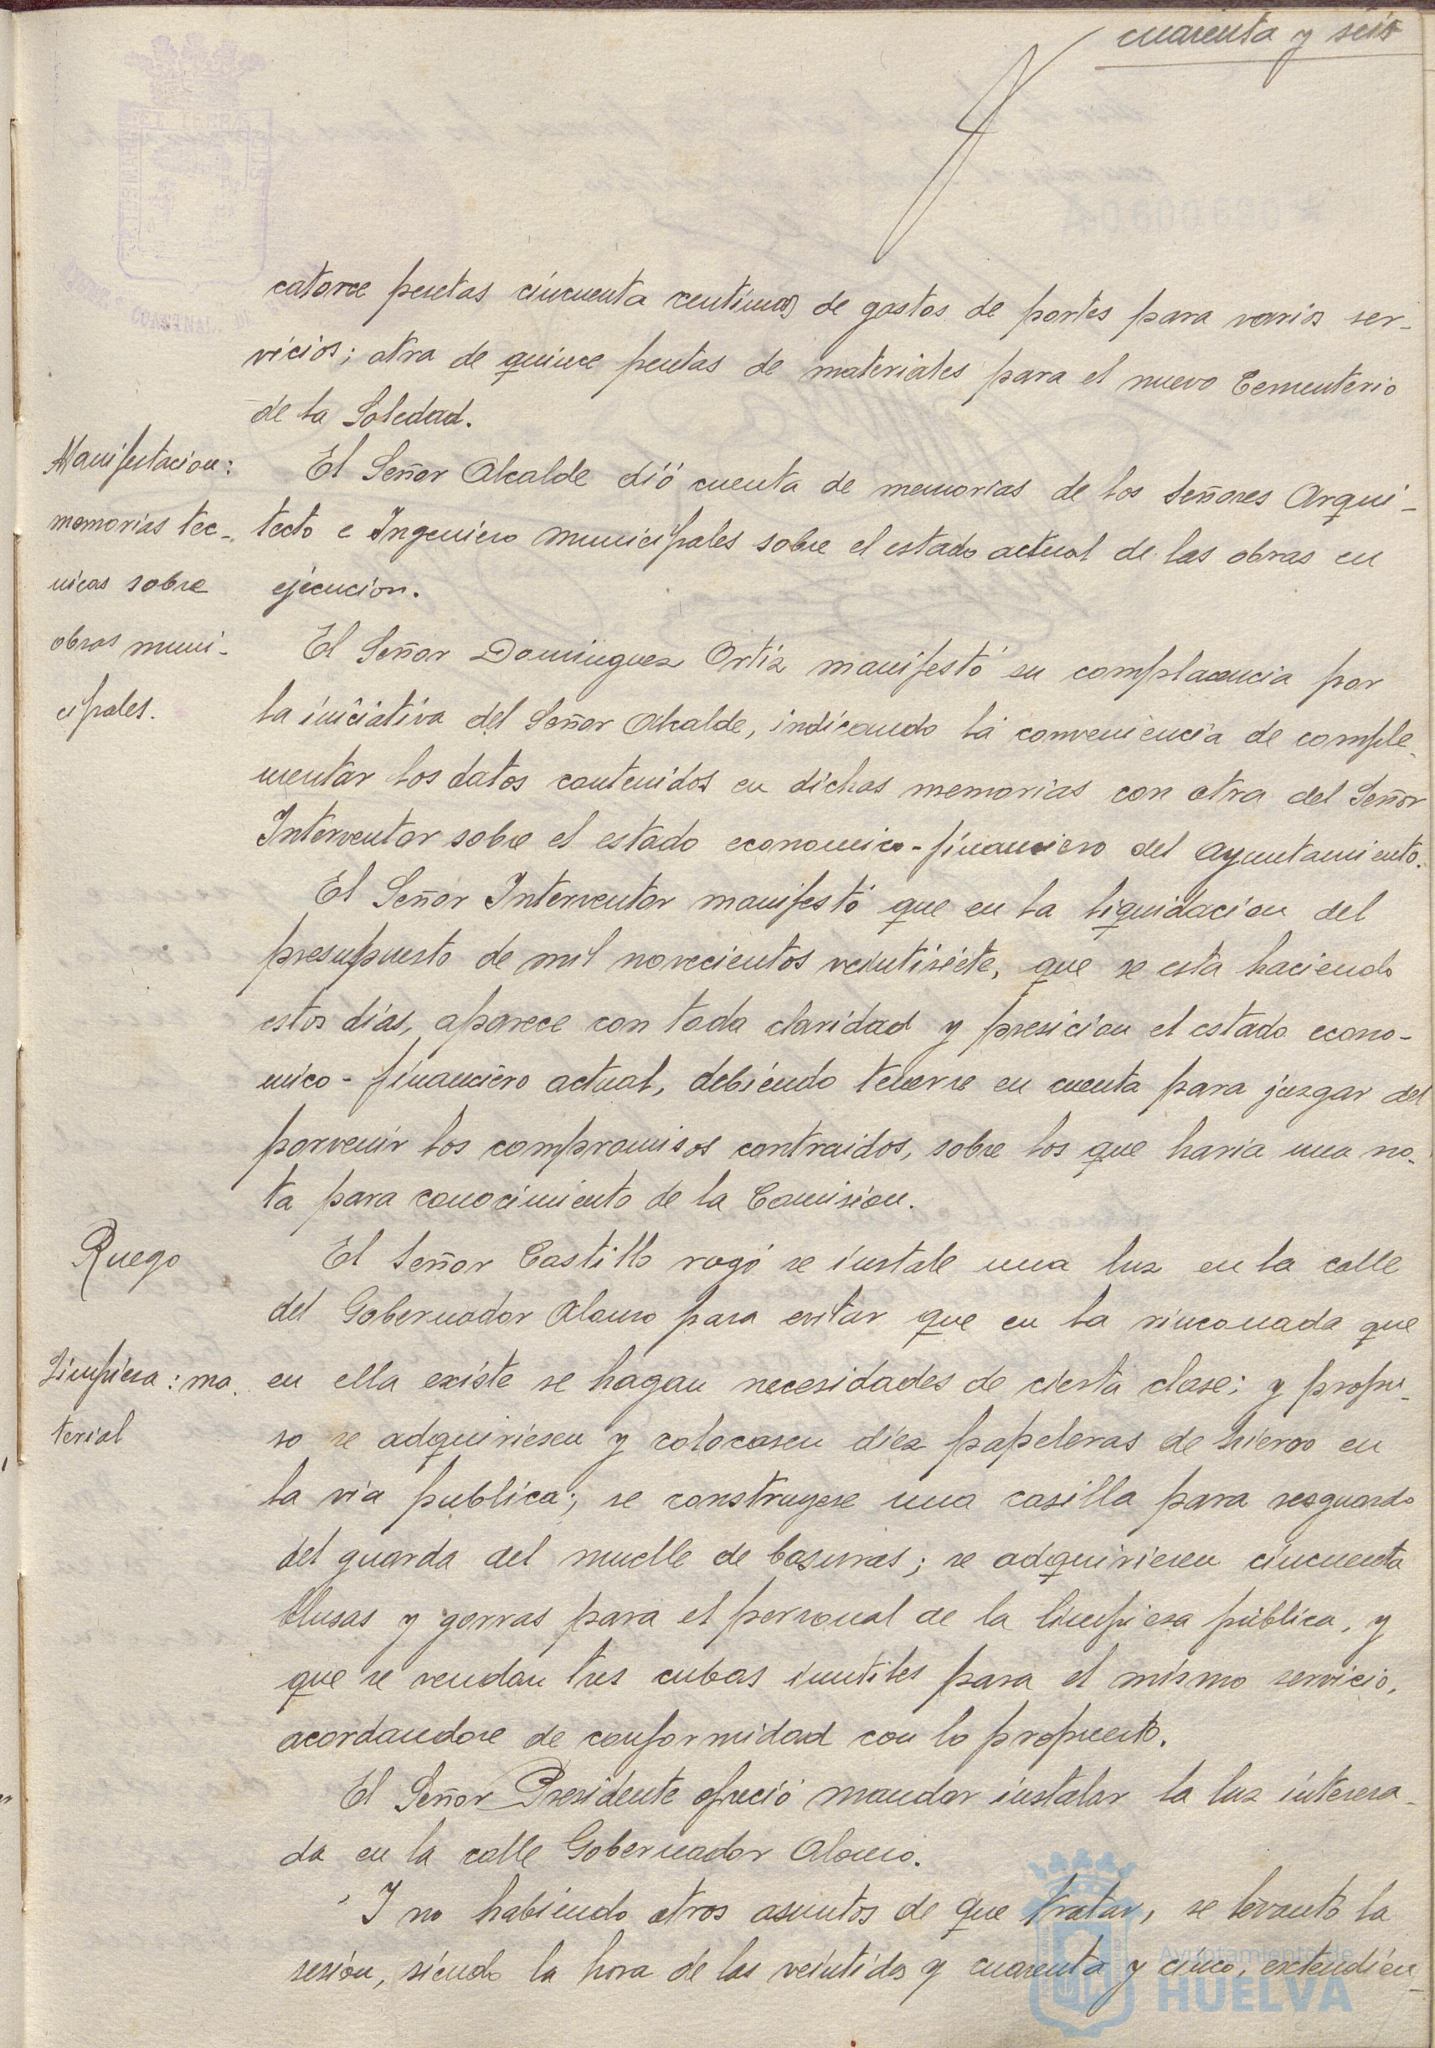 cuarenta y seis
catorce pesetas cincuenta centimos de gastos de portes para varios ser-
vicios; otra de quince pesetas de materiales para el nuevo Cementerio
de la Soledad.
Manifestacion:
memorias tec-
nicas sobre
obras muni-
cipales.
El Señor Alcalde dió cuenta de memorias de los Señores Arqui-
tecto e Ingeniero municipales sobre el estado actual de las obras en
ejecucion.
El Señor Dominguez Ortiz manifestó su complacencia por
la iniciativa del Señor Alcalde, indicando la conveniencia de comple-
mentar los datos contenidos en dichas memorias con otra del Señor
Interventor sobre el estado economico-financiero del Ayuntamiento.
El Señor Interventor manifestó que en la liquidacion del
presupuesto de mil novecientos veintisiete, que se esta haciendo
estos días, aparece con toda claridad y presicion el estado econo-
mico-financiero actual, debiendo tenerse en cuenta para juzgar del
porvenir los compromisos contraidos, sobre los que haria una no-
ta para conocimiento de la Comision.
Ruego
El Señor Castillo rogó se instale una luz en la calle
del Gobernador Alonso para evitar que en la rinconada que
Limpieza: ma-
terial
en ella existe se hagan necesidades de cierta clase; y propu-
so se adquiriesen y colocasen diez papeleras de hierro en
la via publica; se construyese una casilla para resguardo
del guarda del muelle de basuras; se adquiriesen cincuenta
blusas y gorras para el personal de la limpieza pública, y
que se vendan tres cubas inutiles para el mismo servicio,
acordandose de conformidad con lo propuesto.
El Señor Presidente ofreció mandar instalar la luz interesa-
da en la calle Gobernador Alonso.
Y no habiendo otros asuntos de que tratar, se levantó la
sesión, siendo la hora de las veintidos y cuarenta y cinco, extendién-
Ayuntamiento de
HUELVA